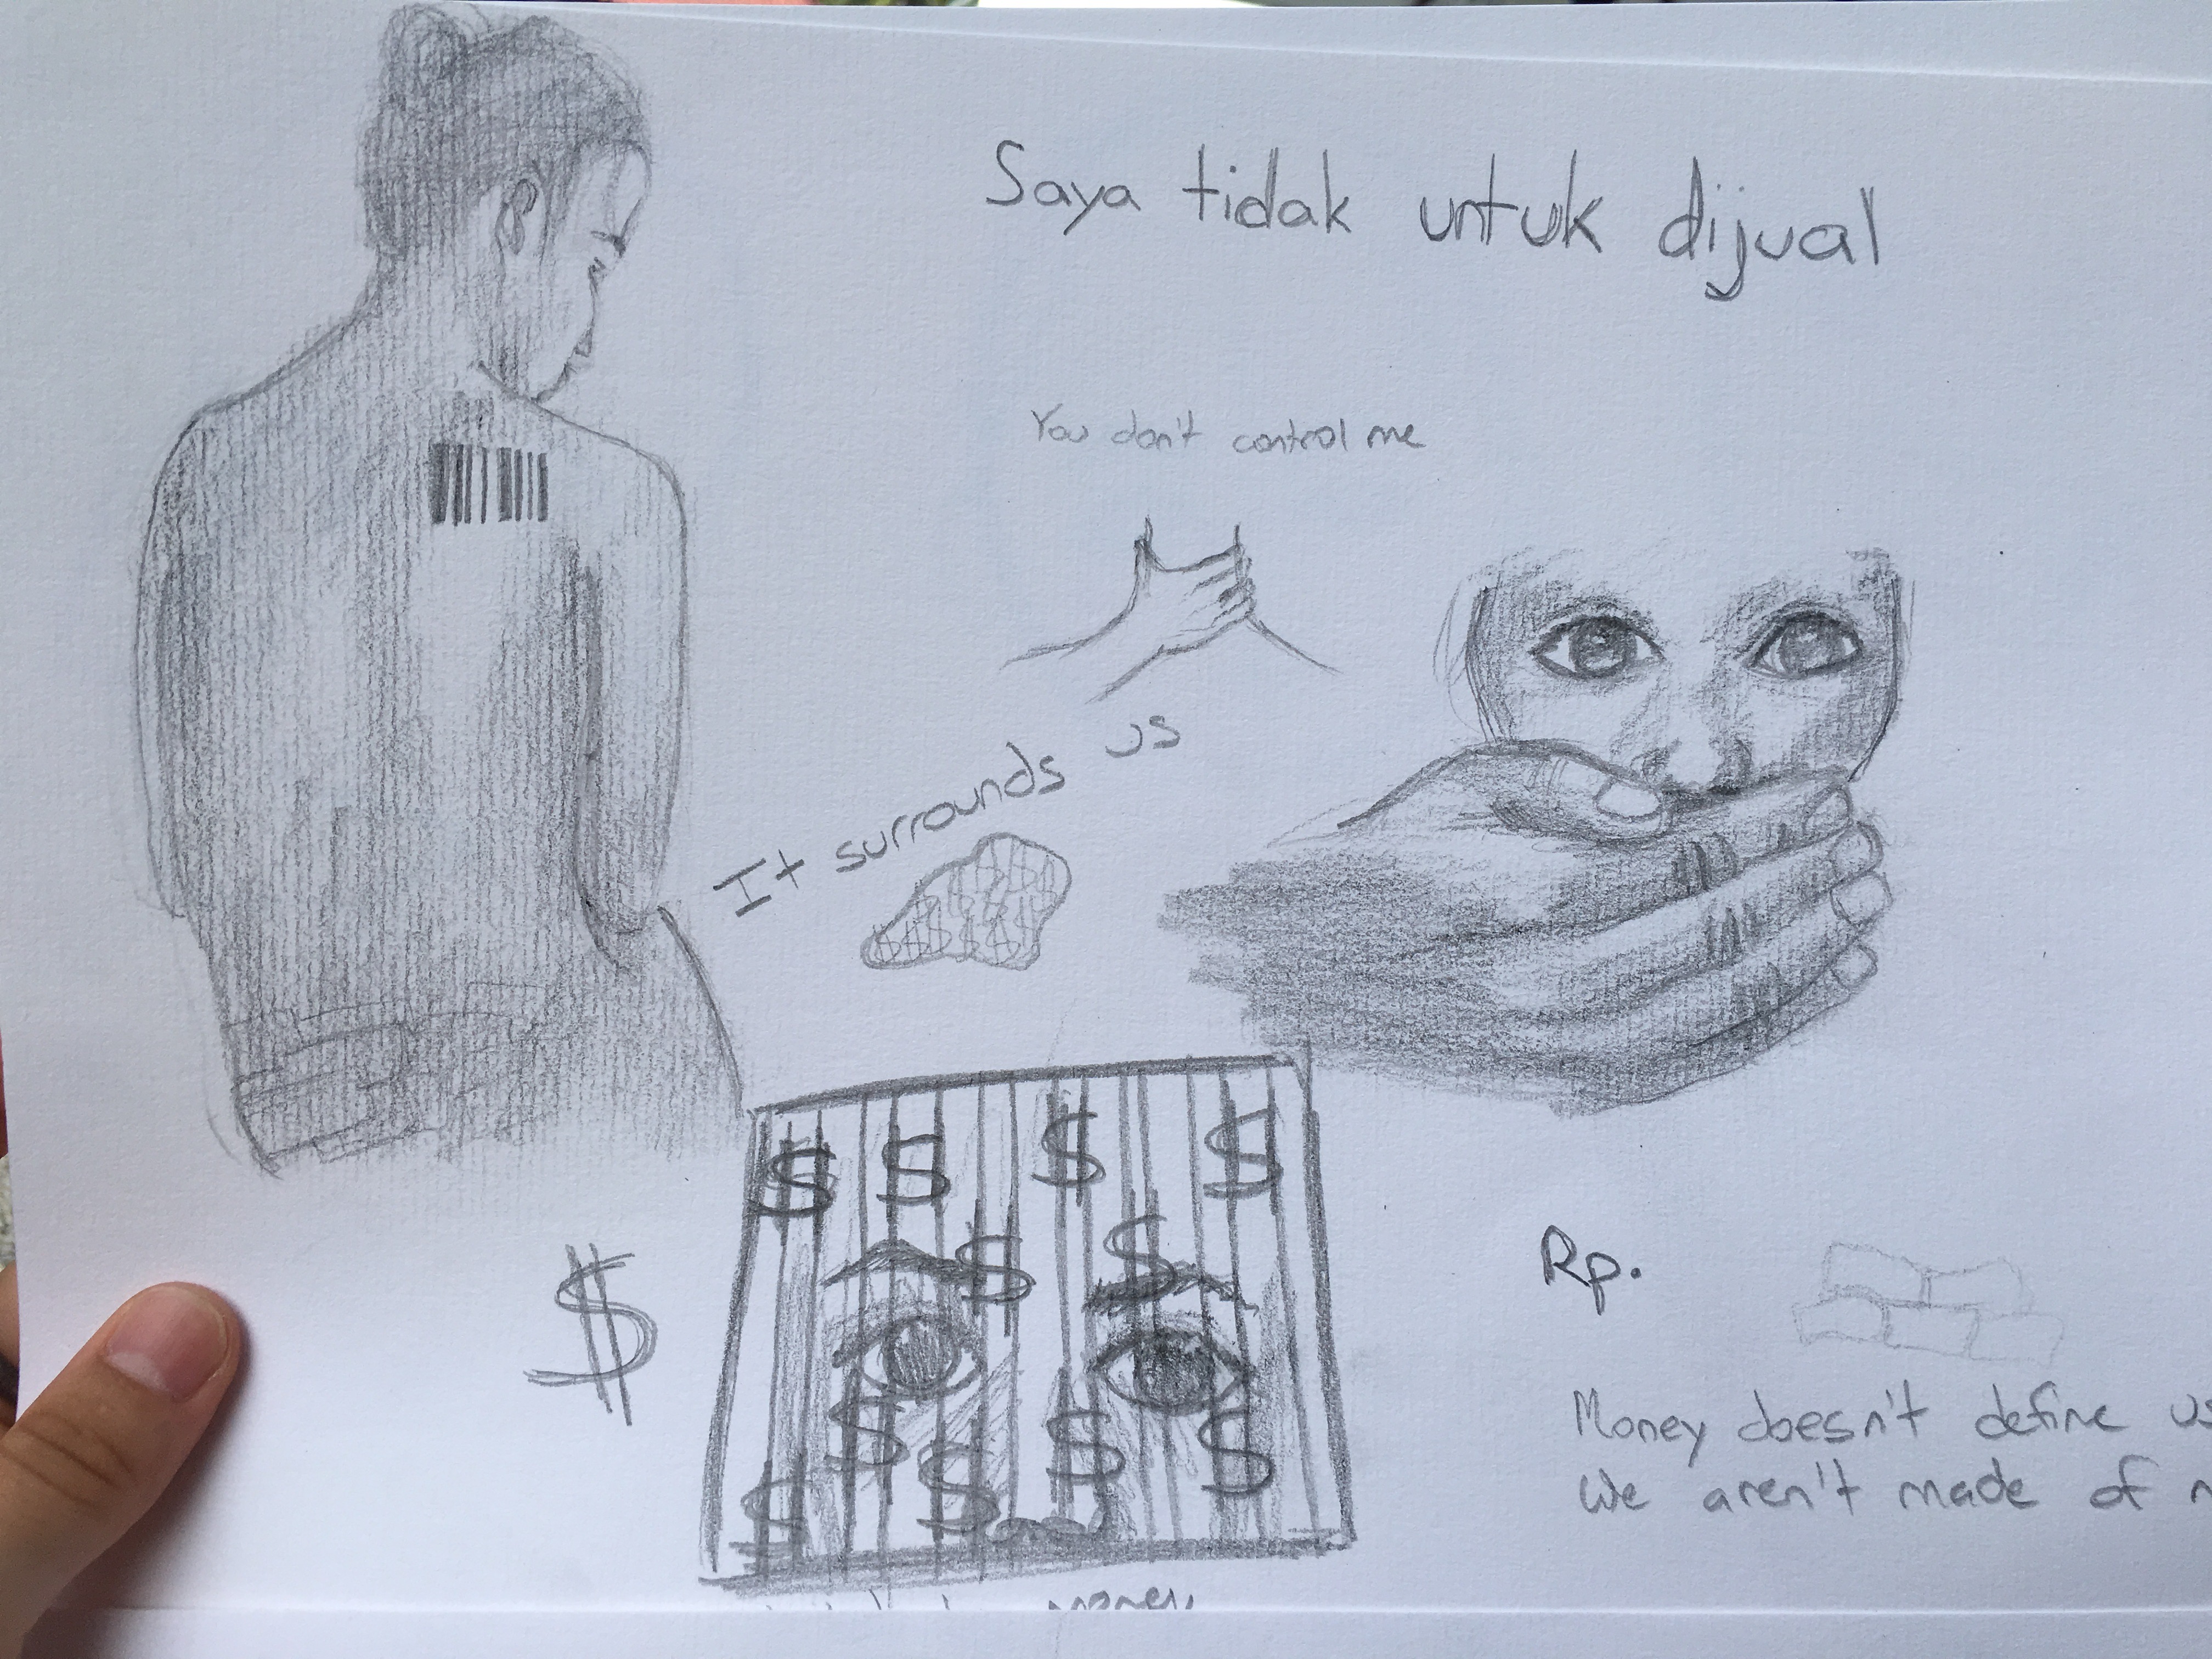 Saya tidak untuk dijual
You don't control me
It surrounds us
$ $ $ $ $
$ $ $ $
$ $
$
$ $ $ $
$
Rp.
Money doesn't define us
We aren't made of
money